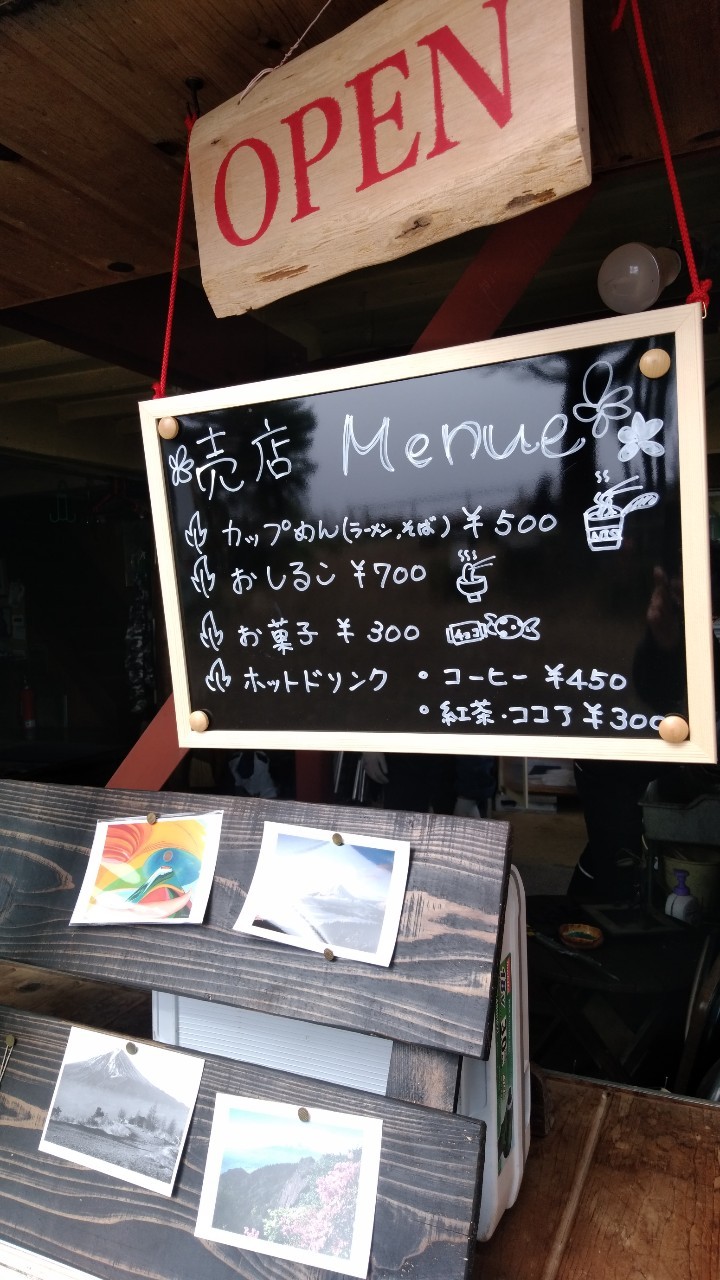 OPEN
売店 Menue
カップめん(ラーメン,そば) ¥500
おしるこ ¥700
お菓子 ¥300
チョコ
ホットドリンク ・コーヒー ¥450
・紅茶・ココア ¥300